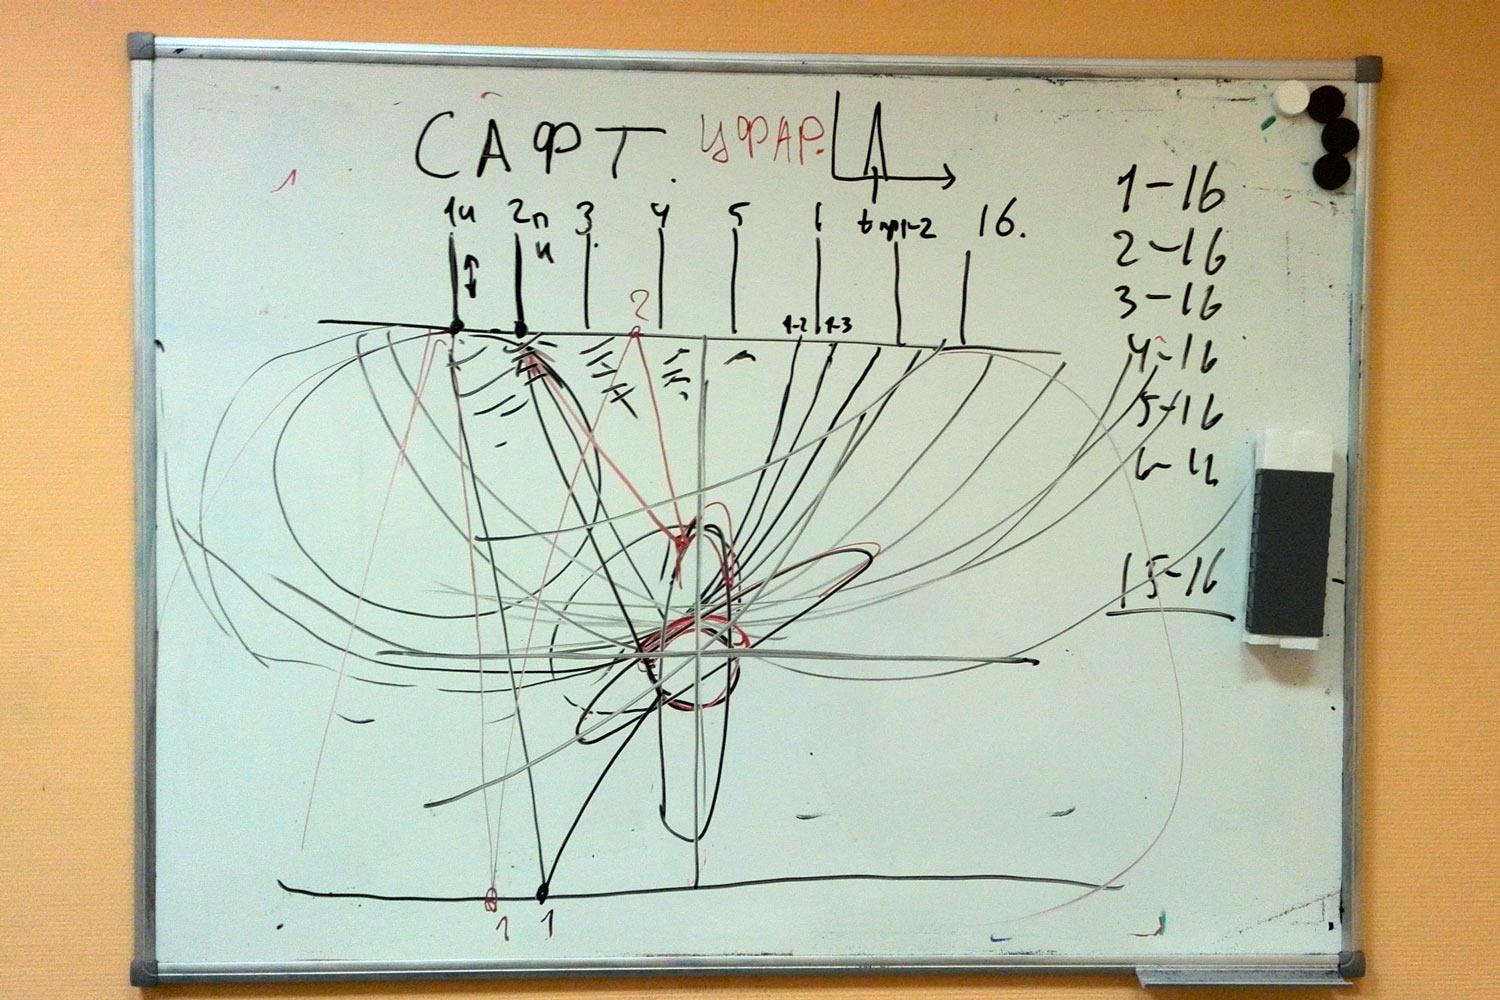 САФТ. ЦФАР.
1и 2п 3 4 5 1 tпр1-2 16.
и
2
1-2 1-3
1-16
2-16
3-16
4-16
5-16
15-16
1 1